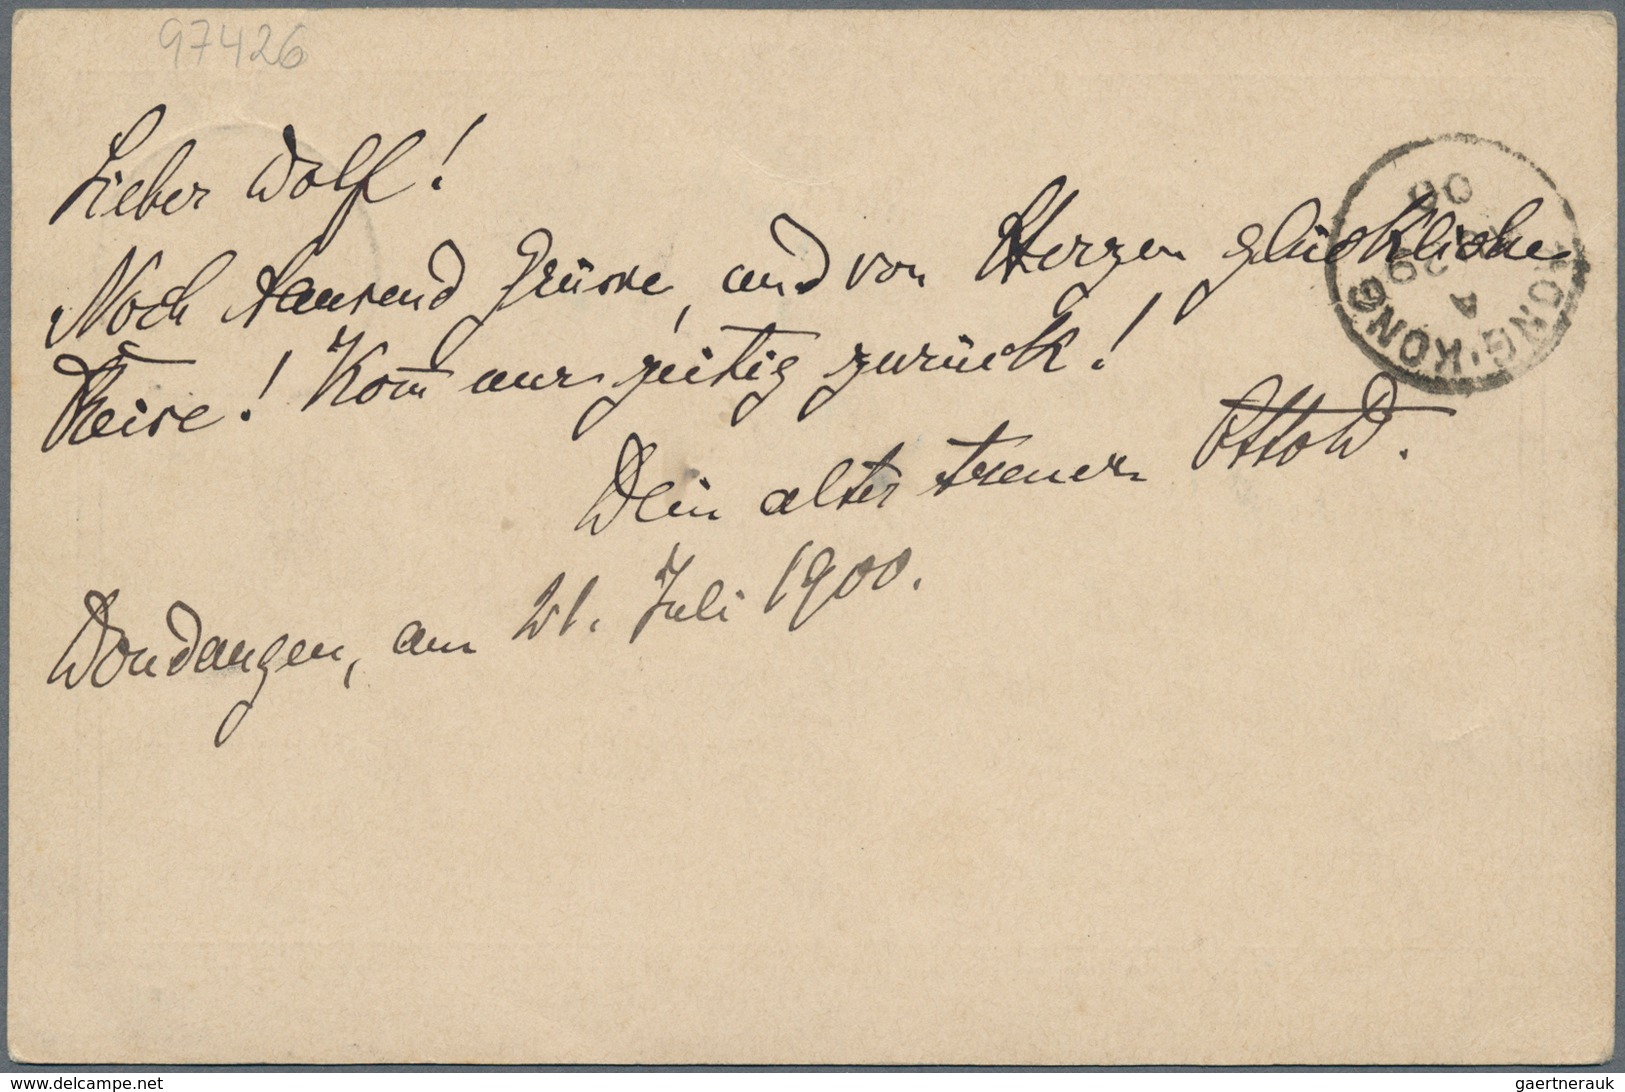 97426
Lieber Wolf!
Noch tausend Grüsse, und von Herzen glückliche
Reise! Kom̅ nur zeitig zurück!
Dein alter treuer Otto W.
Dondangen, am 21. Juli 1900.
HONG·KONG
A
00
www.delcampe.net
gaertnerauk